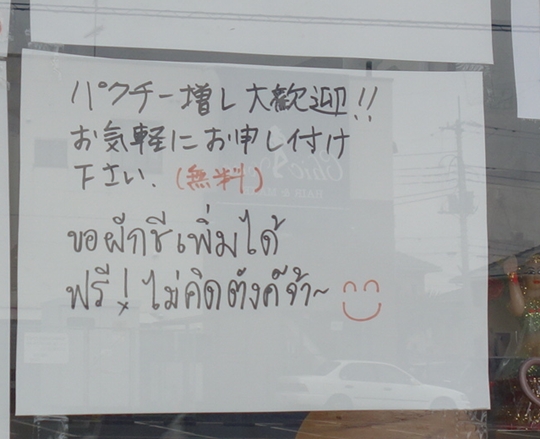 パクチー増し大歓迎!!
お気軽にお申し付け
下さい.(無料)
ขอผักชีเพิ่มได้
ฟรี! ไม่คิดตังค์จ้า~